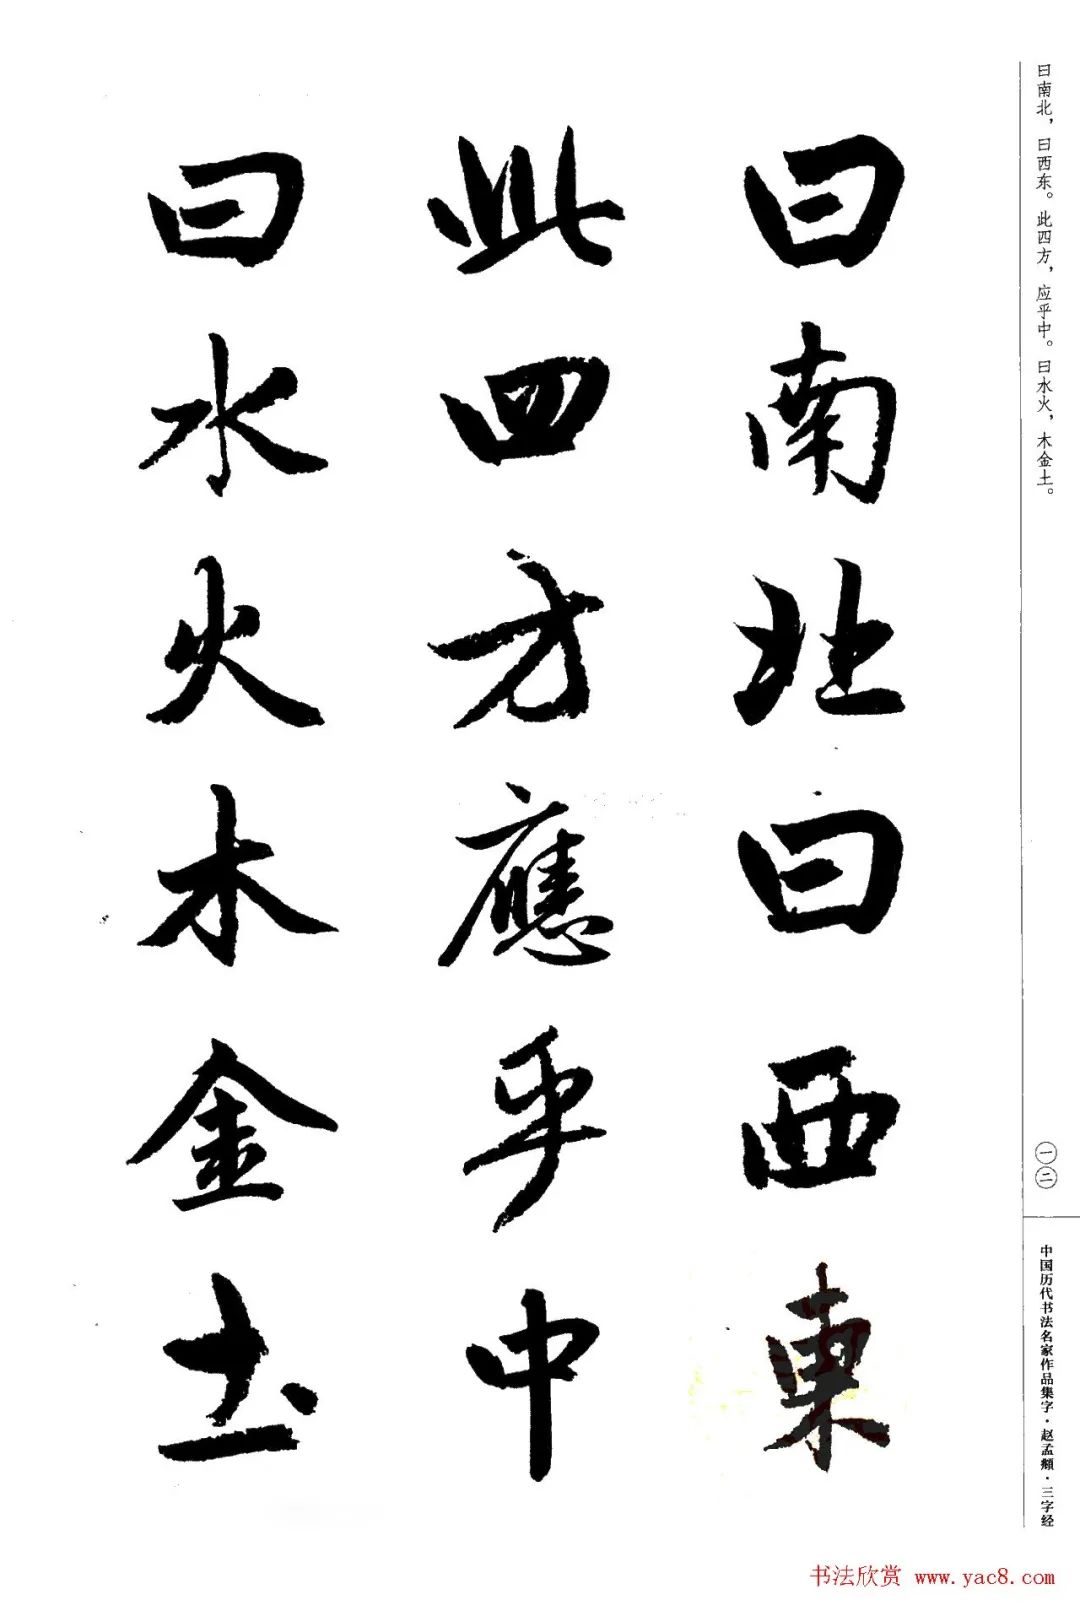 曰南北，曰西东。此四方，应乎中。曰水火，木金土。
曰南北曰西東
此四方應乎中
曰水火木金土
一二
中国历代书法名家作品集字·赵孟頫·三字经
书法欣赏 www.yac8.com